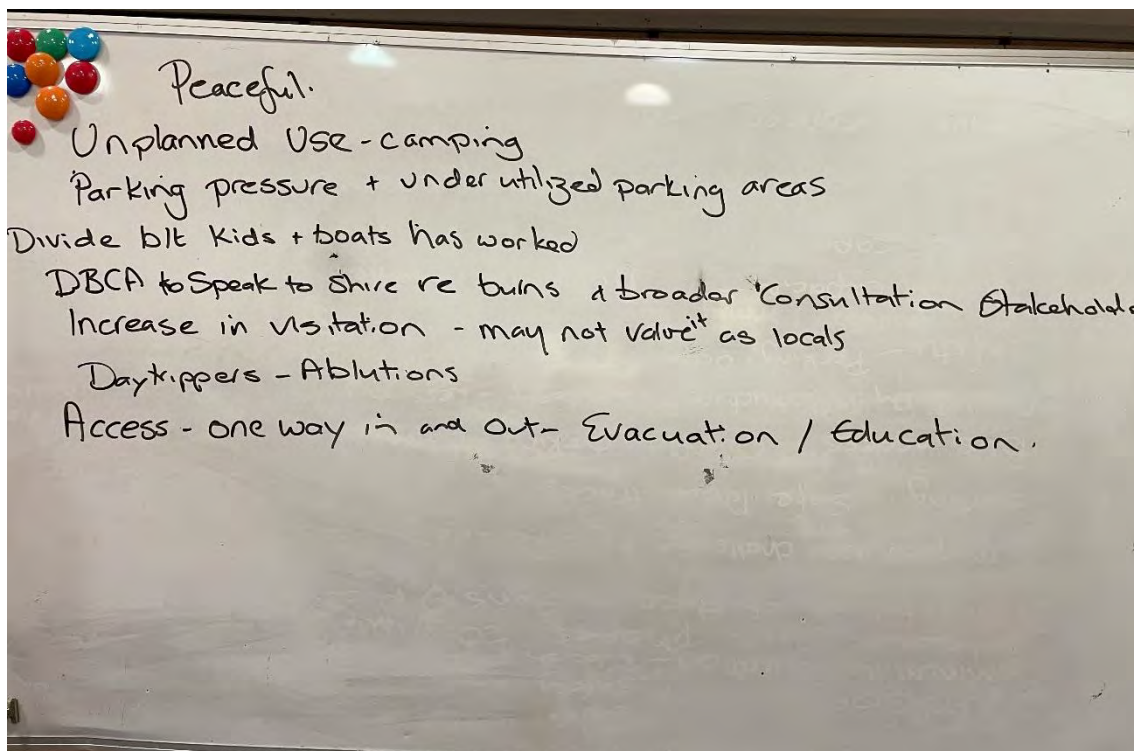 Peaceful.
Unplanned Use - camping
Parking pressure + under utilized parking areas
Divide b/t Kids + boats has worked
DBCA to Speak to Shire re burns & broader Consultation Stakehold
Increase in visitation - may not value it as locals
Daytrippers - Ablutions
Access - one way in and out - Evacuation / Education.